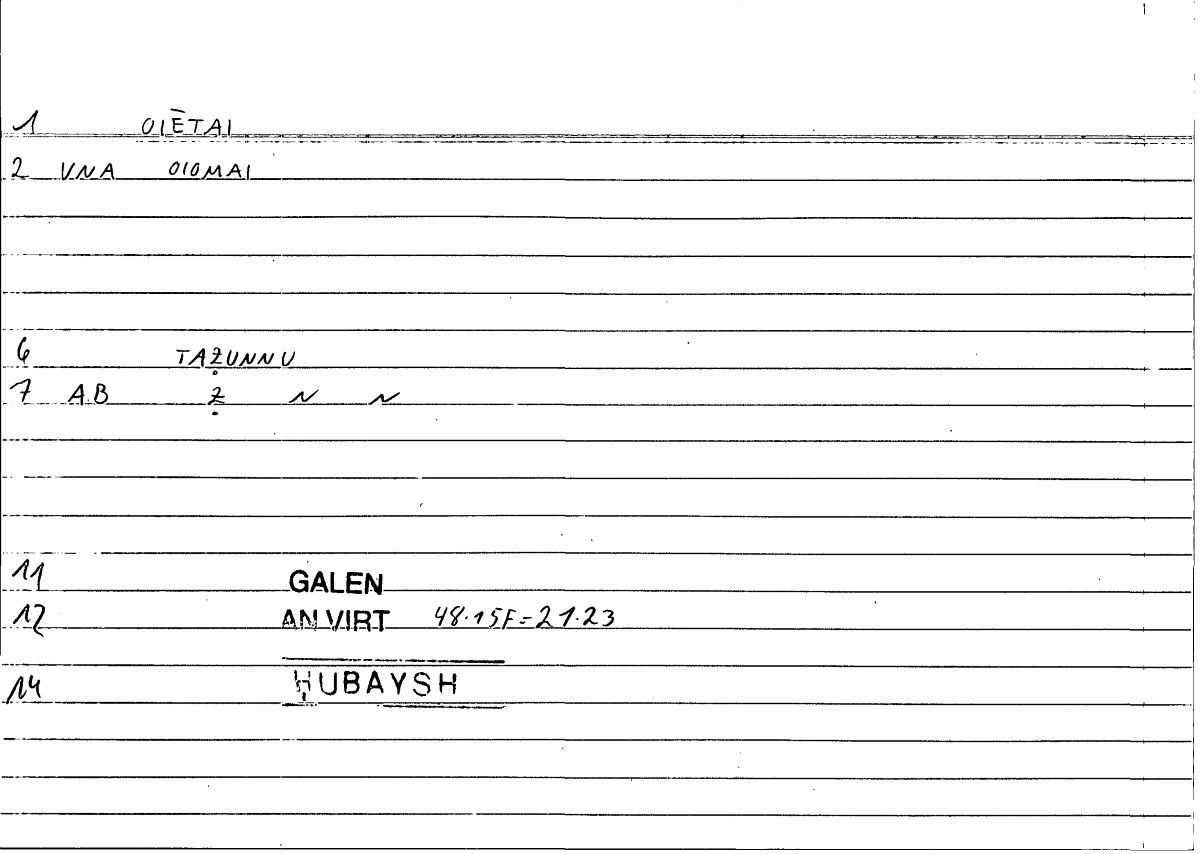 1 OIĒTAI
2 VNA OIOMAI
6 TAẒUNNU
7 AB Ẓ N N
11 GALEN
12 AN VIRT 48.15F=21.23
14 ḤUBAYSH